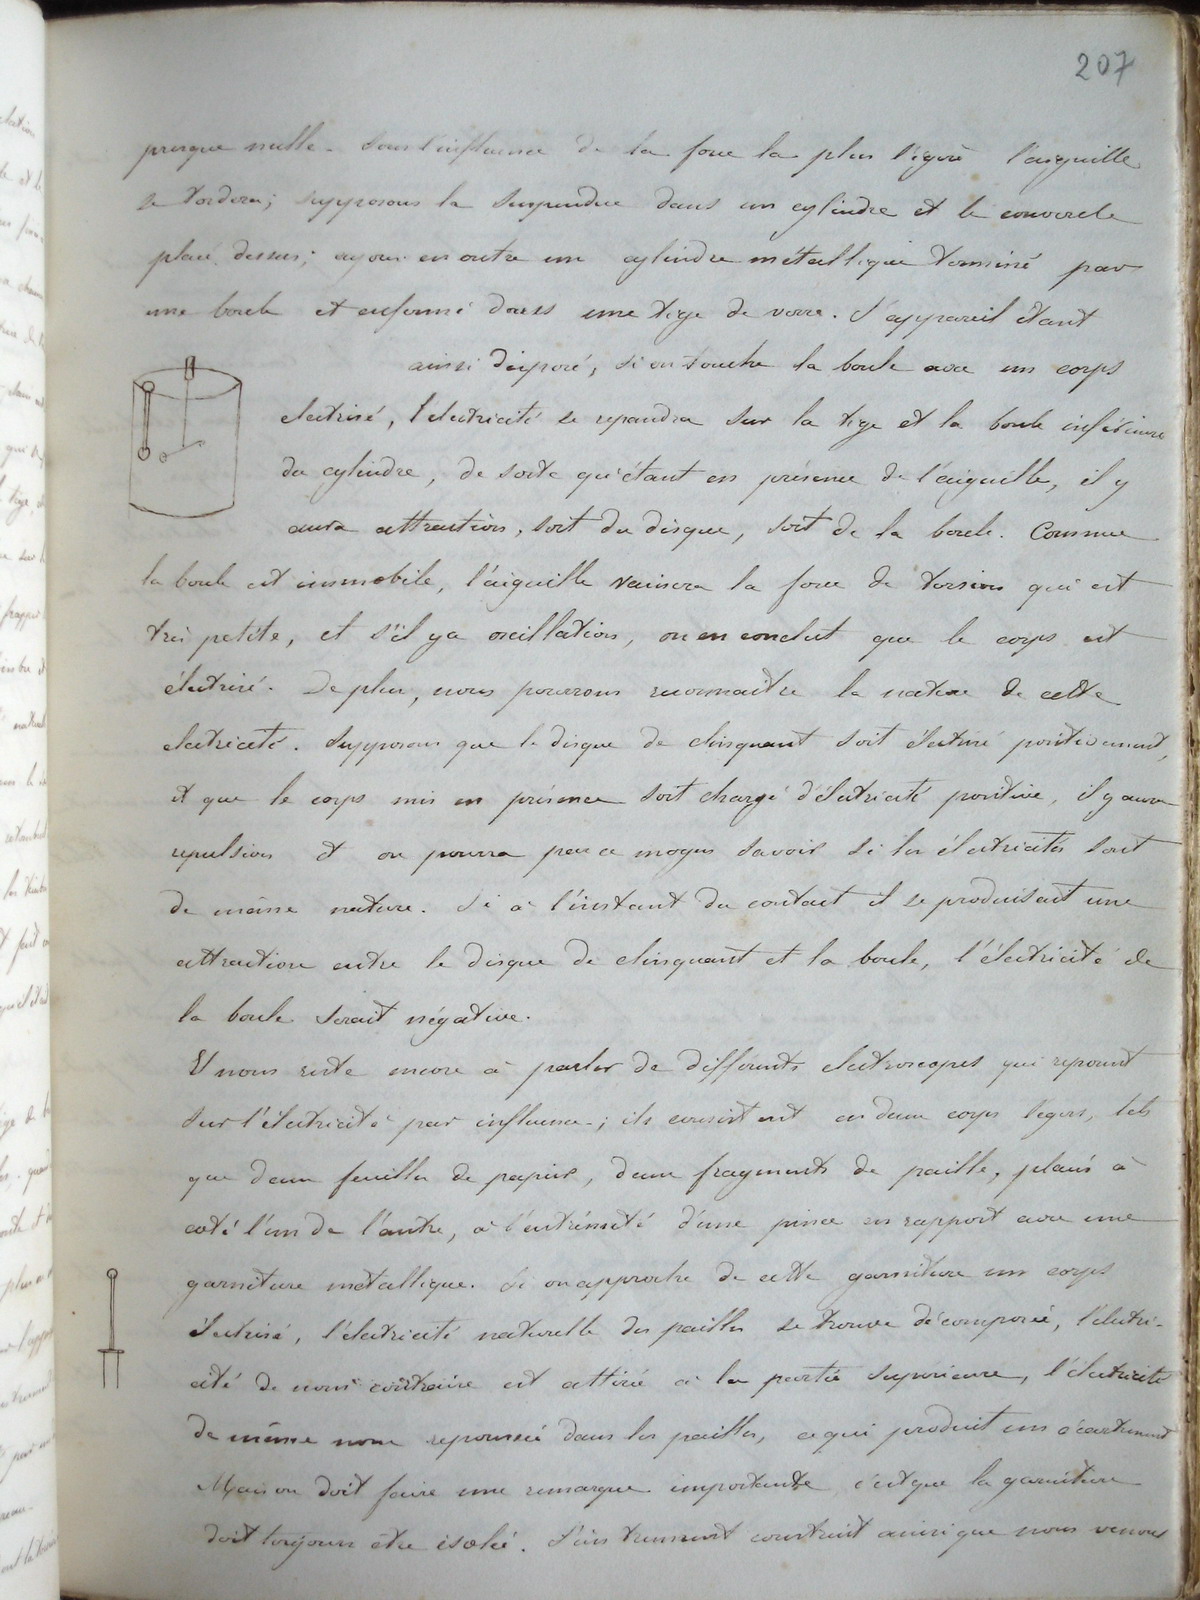 207
presque nulle. Sous l'influence de la force la plus légère l'aiguille
se tordera; supposons la suspendue dans un cylindre et le couvercle
placé dessus; ayons en outre un cylindre métallique terminé par
une boule et enfermé dans une tige de verre. L'appareil étant
ainsi disposé, si on touche la boule avec un corps
électrisé, l'électricité se repandra sur la tige et la boule inférieure
du cylindre, de sorte qu'étant en présence de l'aiguille, il y
aura attraction, soit du disque, soit de la boule. Comme
la boule est immobile, l'aiguille vaincra la force de torsion qui est
très petite, et s'il y a oscillation, on en conclut que le corps est
électrisé. De plus, nous pourrons reconnaître la nature de cette
électricité. Supposons que le disque de clinquant soit électrisé positivement,
et que le corps mis en présence soit chargé d'électricité positive, il y aura
repulsion et on pourra par ce moyen savoir si les électricités sont
de même nature. Si à l'instant du contact il se produisait une
attraction entre le disque de clinquant et la boule, l'électricité de
la boule serait négative.
Il nous reste encore à parler de différents electroscopes qui reposent
sur l'électricité par influence; ils consistent en deux corps légers, tels
que deux feuilles de papier, deux fragments de paille, placés à
coté l'un de l'autre, à l'extrémité d'une pince en rapport avec une
garniture métallique. Si on approche de cette garniture un corps
électrisé, l'électricité naturelle des pailles se trouve décomposée, l'électri-
cité de nom contraire est attirée à la partie supérieure, l'électricité
de même nom repoussée dans les pailles, ce qui produit un écartement
Mais on doit faire une remarque importante c'est que la garniture
doit toujours être isolée. L'instrument construit ainsi que nous venons